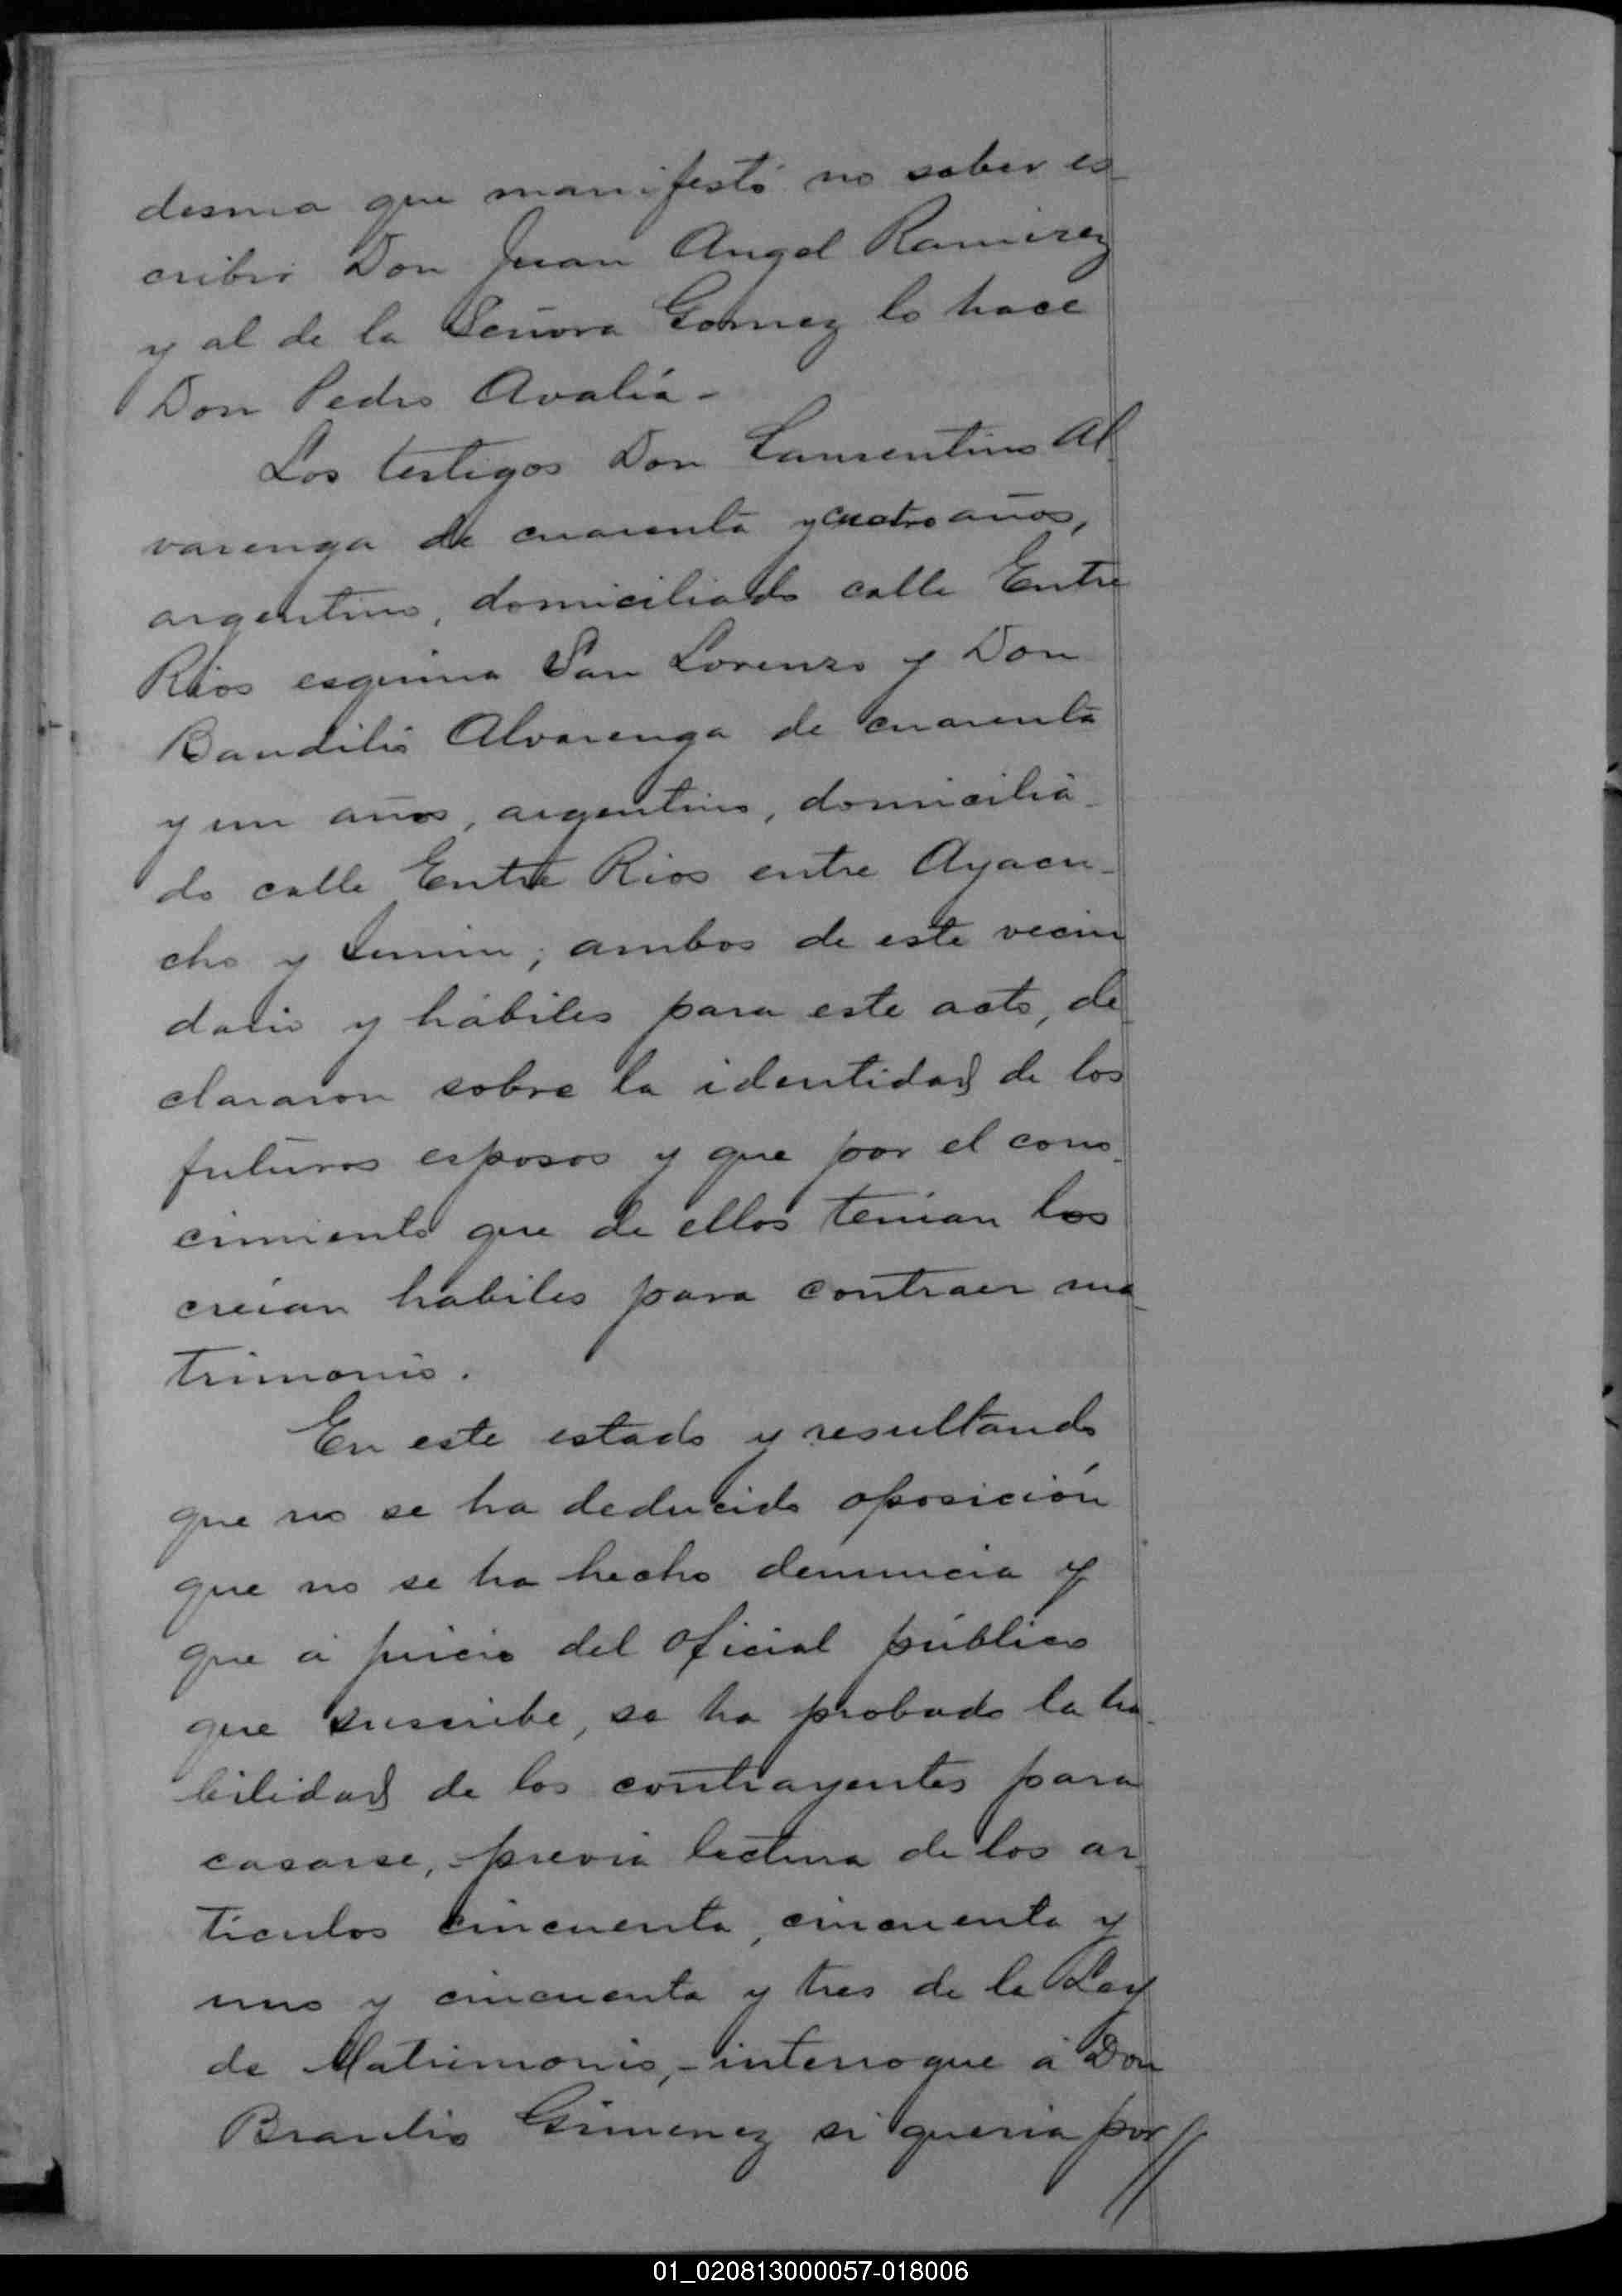 desma que manifestó no saber es-
cribir Don Juan Angel Ramirez
y al de la Señora Gomez lo hace
Don Pedro Avalía.
Los testigos Don Laurentino Al-
varenga de cuarenta y cuatro años,
argentino, domiciliado calle Entre
Rios esquina San Lorenzo y Don
Baudilio Alvarenga de cuarenta
y un años, argentino, domicilia-
do calle Entre Rios entre Ayacu-
cho y Junin; ambos de este vecin
dario y hábiles para este acto, de-
clararon sobre la identidad de los
futuros esposos y que por el cono-
cimiento que de ellos tenían los
creían habiles para contraer ma-
trimonio.
En este estado y resultando
que no se ha deducido oposición
que no se ha hecho denuncia y
que á juicio del oficial público
que suscribe, se ha probado la ha-
bilidad de los contrayentes para
casarse, previa lectura de los ar-
tículos cincuenta, cincuenta y
uno y cincuenta y tres de la Ley
de Matrimonio,- interrogue á Don
Braulio Gimenez si queria por//
01_020813000057-018006